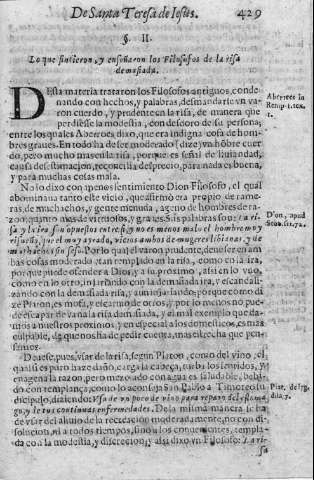 De Santa Teresa de Iesus. 429
§. II.
Lo que sintieron, y enseñaron los Filosofos de la risa
demasiada.
DEsta materia trataron los Filosofos antiguos, conde
nando con hechos, y palabras, desmandarse vn va
ron cuerdo, y prudente en la risa, de manera que
perdiesse la modestia, con desdoro de su persona;
entre los quales Aberroes dixo, que era indigna cosa de hom-
bres graues. En todo ha de ser moderado (dize) vn hõbre cuer
do, pero mucho mas en la risa, porque es señal de liuiandad,
causa desestimacion, reconcilia desprecio, para nada es buena,
y para muchas cosas mala.
Aberroes in
No lo dixo con menos sentimiento Dion Filosofo, el qual
abominaua tanto este vicio, que afirmó era propio de rame-
ras, de muchachos, y gente menuda, ageno de hombres de ra-
zon, quanto mas de virtuosos, y graues. Sus palabras son: La ri-
sa y la ira, son opuestos entre si, y no es menos malo el hombre muy
risueño, que el muy ayrado, vicios ambos de mugeres liuianas, y de
muchachos sin seso. Por lo qual el varon prudente, deue ser en am
bas cosas moderado, tan templado en la risa, como en la ira,
porque puede ofender a Dios, y a su proximo, assi en lo vno,
como en lo otro, injuriando con la demasiada ira, y escandali-
zando con la demasiada risa,
Dion, apud
capar de vana la demasiada risa, y el mal exemplo que da-
mos a nuestros proximos, y en especial a los domesticos, es mas
culpable, da que nos ha de pedir cuenta, mas estrecha que pen-
samos.
Deuese, pues, vsar de la risa, segun Platon, como del vino, el
qual si es puro haze daño, carga la cabeça, turba los sentidos, y
enagena la razon, pero mezclado con agua es saludable, bebi-
do con templança, como lo aconseja San Pablo a Timoteo su
dicipulo, diziendo: Vsa de vn poco de vino para reparo del estoma
go, y de tus continuas enfermedades. De la misma manera se ha
de vsar del aliuio de la recreacion moderadamente, no con di-
solucion, ni a todos tiempos, sino a los conuenientes, templa-
da con la modestia, y discrecion, y assi dixo vn Filosofo: La ri-
sa